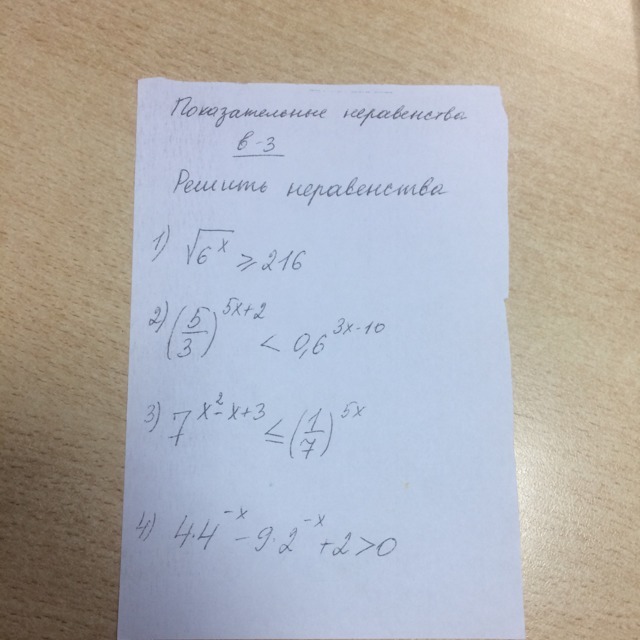 Показательные неравенства
в-3
Решить неравенства
1) √6^x ⩾ 216
2) (5/3)^(5x+2) < 0,6^(3x-10)
3) 7^(x²-x+3) ≤ (1/7)^(5x)
4) 4·4^(-x) - 9·2^(-x) + 2 > 0